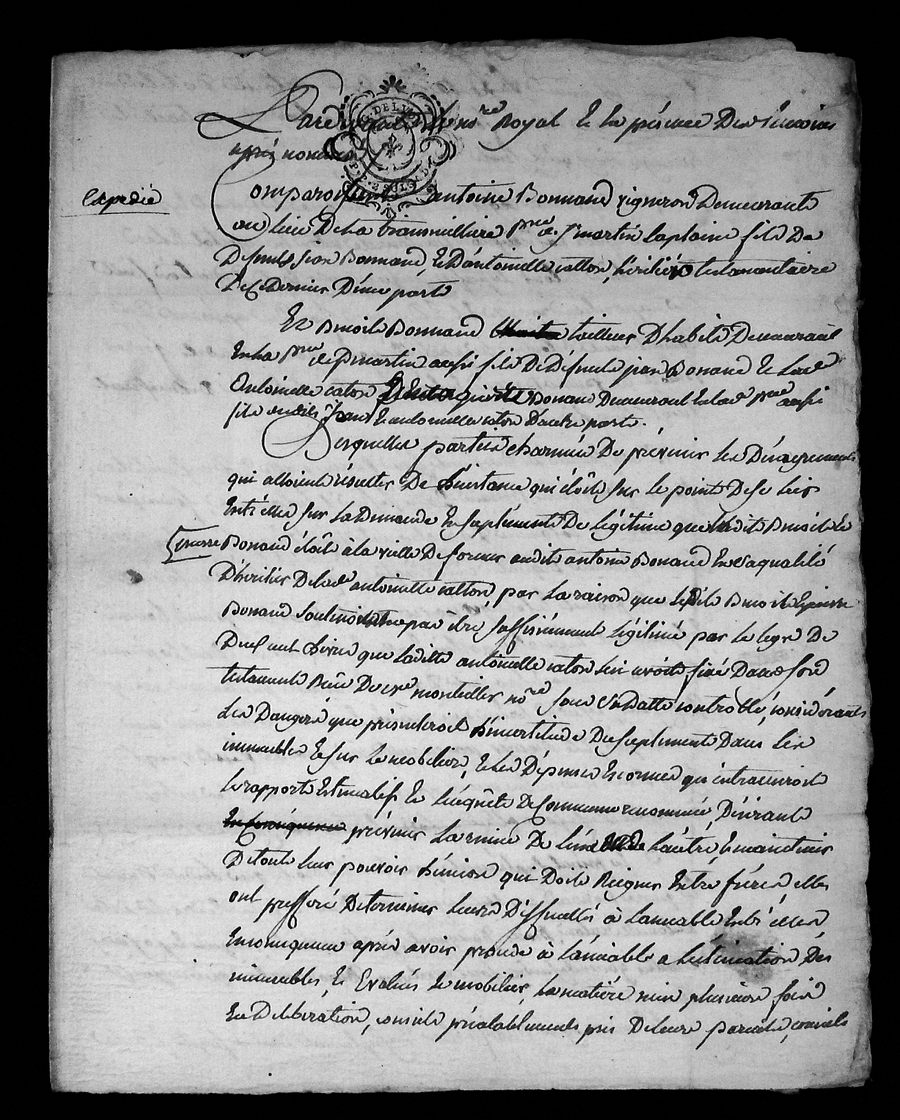 Pardevant le no.re Royal Et En présence Des témoins
après nommés
Expedié
Comparoissent antoine Bonnand vigneron Demeurant
au lieu De la p.sse de s.t martin la plaine fils De
Deffunt Jean Bonnand, Et D'antoinette caton, héritier testamentaire
De Ce Dernier D'une part
Et Benoit Bonnand tailleur D'habits Demeurant
En la p.sse de s.t martin aussi fils De Deffunt jean Bonand Et La d.e
antoinette caton Bonand Demeurant En lad.e p.sse aussi
fils dudit jean Et antoinette caton D'autre part.
Lesquelles parties charmées De prévenir les Désagréments
qui alloient résulter De L'instance qui étoit sur le point De se lier
Entr'elles sur La Demande En suplément De légitime que ledit Benoit Et
pierre Bonand étoit à la veille De former audit antoine Bonand En sa qualité
D'héritier De lad.e antoinette catton, par La raison que ledit Benoit Et pierre
Bonand Soutenoit pas être suffisemment légitimé par le legs De
que Laditte antoinette caton lui avoit fixé Dans son
testament Reçu De me monteiller no.re sous sa Datte controllé, considérants
Les Dangers que présenteroit L'incertitude Du suplement Dans les
immeubles Et sur Le mobilier, Et Les Dépenses Enormes qu'entraineroit
le rapport Estimatif Et L'enquête De Commune renommée Désirants
prévenir La ruine De L'une Et De L'autre, Et maintenir
De tout leur pouvoir L'union qui Doit Reigner Entre frères elles
ont préfféré De terminer leurs Difficultés à L'amiable Entr'elles
En conséquence après avoir procédé à L'amiable a L'estimation Des
immeubles, Et Evalués Le mobilier, La matière mise plusieurs fois
En Déliberation, conseils préalablements pris De leurs parents, conseils